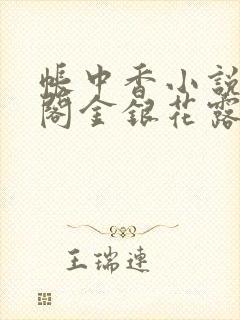 帳中香小說
閣金銀花露
王瑞連